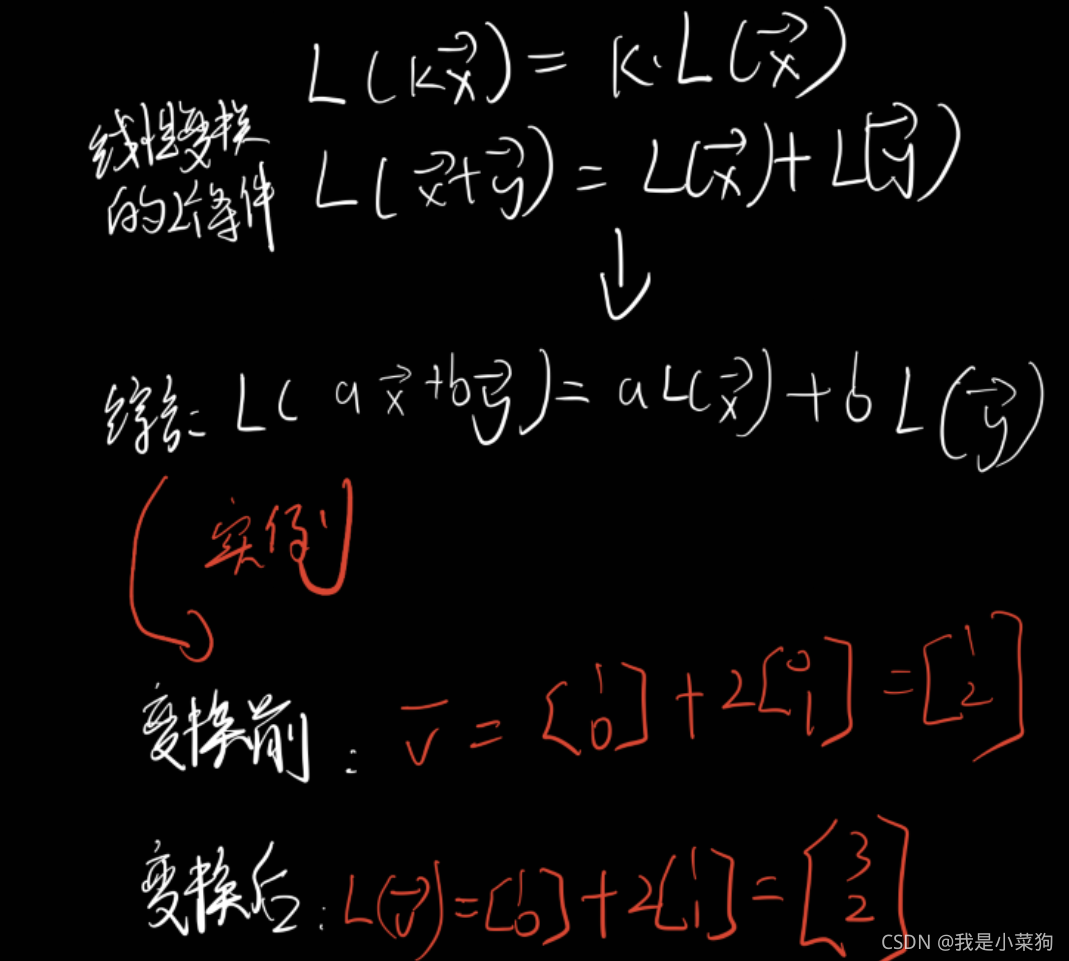 L(kx⃗) = k·L(x⃗)
线性变换
的2个条件 L(x⃗+y⃗) = L(x⃗)+L(y⃗)
↓
综合: L(ax⃗+by⃗) = aL(x⃗)+bL(y⃗)
实例
变换前: v̄ = [1 0] + 2[0 1] = [1 2]
变换后: L(v⃗) = [1 0] + 2[1 1] = [3 2]
CSDN @我是小菜狗